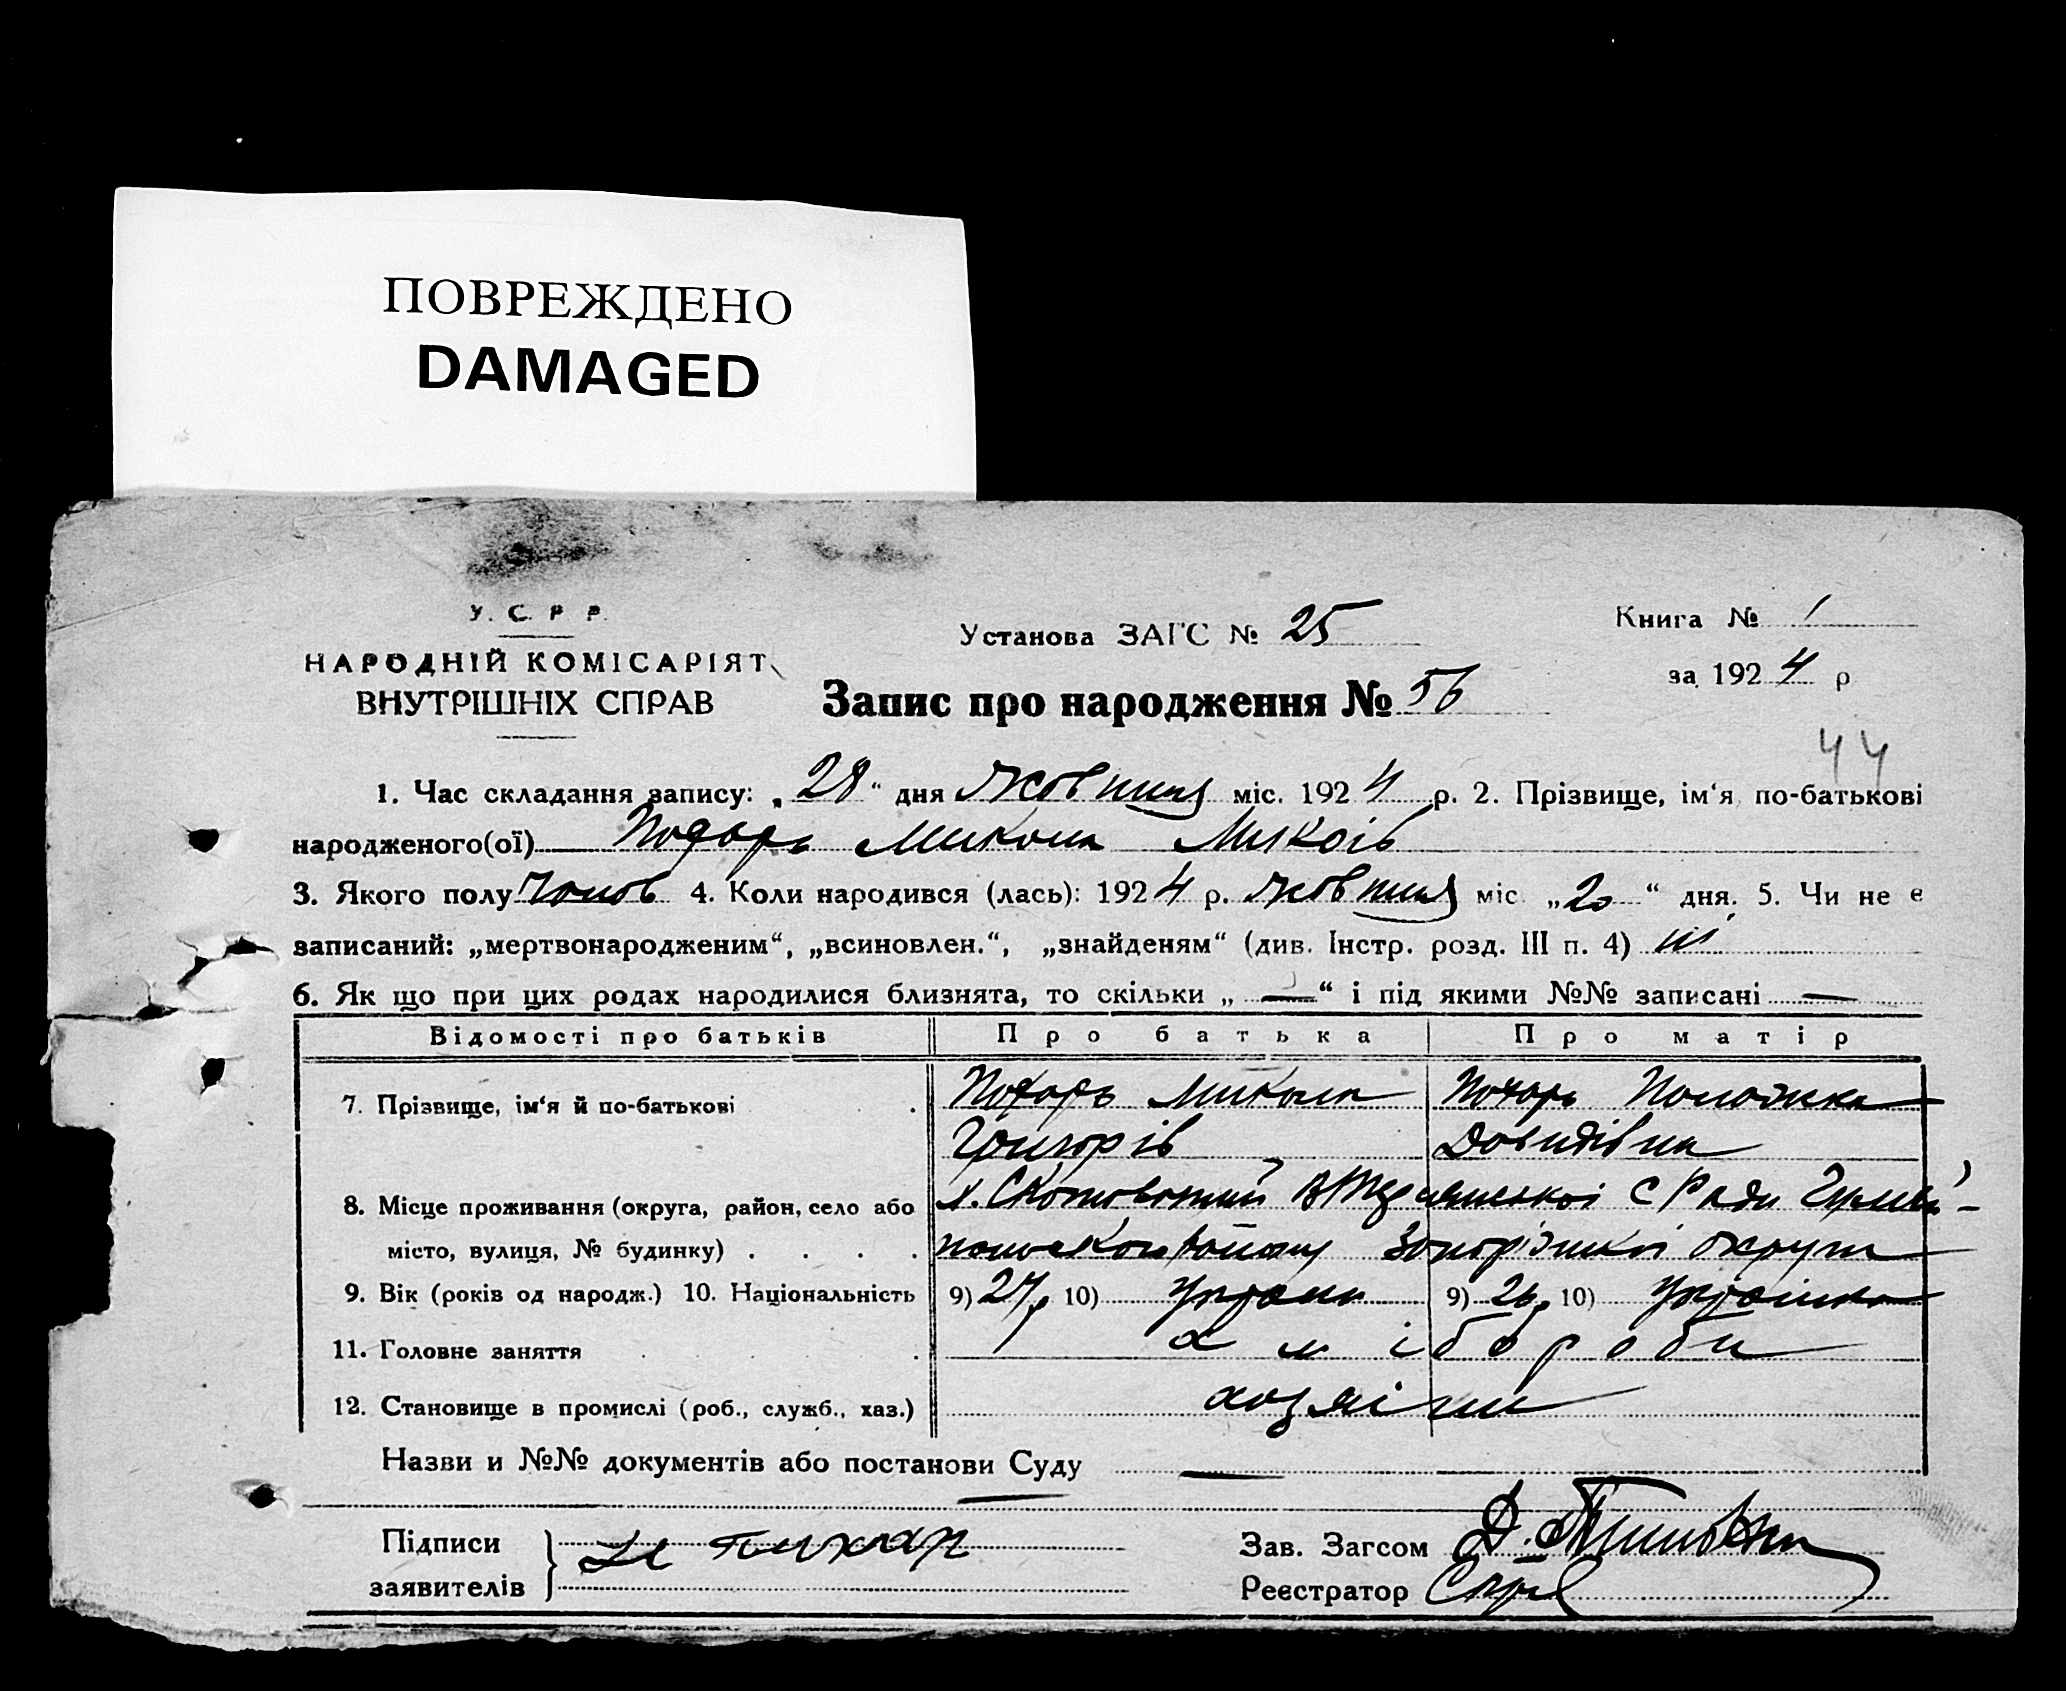 ПОВРЕЖДЕНО
DAMAGED
У. С. Р. Р.
НАРОДНІЙ КОМІСАРІЯТ
ВНУТРІШНІХ СПРАВ
Установа ЗАГС № 25
Книга № 1
за 1924 р
Запис про народження № 56
44
1. Час складання запису: „28“ дня жовтня міс. 1924 р. 2. Прізвище, ім‘я, по-батькові
народженого(ої) Микола
3. Якого полу 4. Коли народився (лась): 1924 р. жовтня міс. „20“ дня. 5. Чи не є
записаний: „мертвонародженим“, „всиновлен.“, „знайденям“ (див. Інстр. розд. III п. 4) ні
6. Як що при цих родах народилися близнята, то скільки „ — “ і під якими №№ записані —
Відомості про батьків Про батька Про матір
7. Прізвище, ім‘я й по-батькові . Микола
Григорів Довидівна
8. Місце проживання (округа, район, село або х. с Ради Гуляй-
місто, вулиця, № будинку) . . . . району Запоріжкої округи
9. Вік (років од народж.) 10. Національність 9) 27 р 10) 9) 26 р 10)
11. Головне заняття . . . хлібороби
12. Становище в промислі (роб., служб., хаз.) хозяїни
Назви и №№ документів або постанови Суду —
Підписи
заявителів
Зав. Загсом
Реєстратор